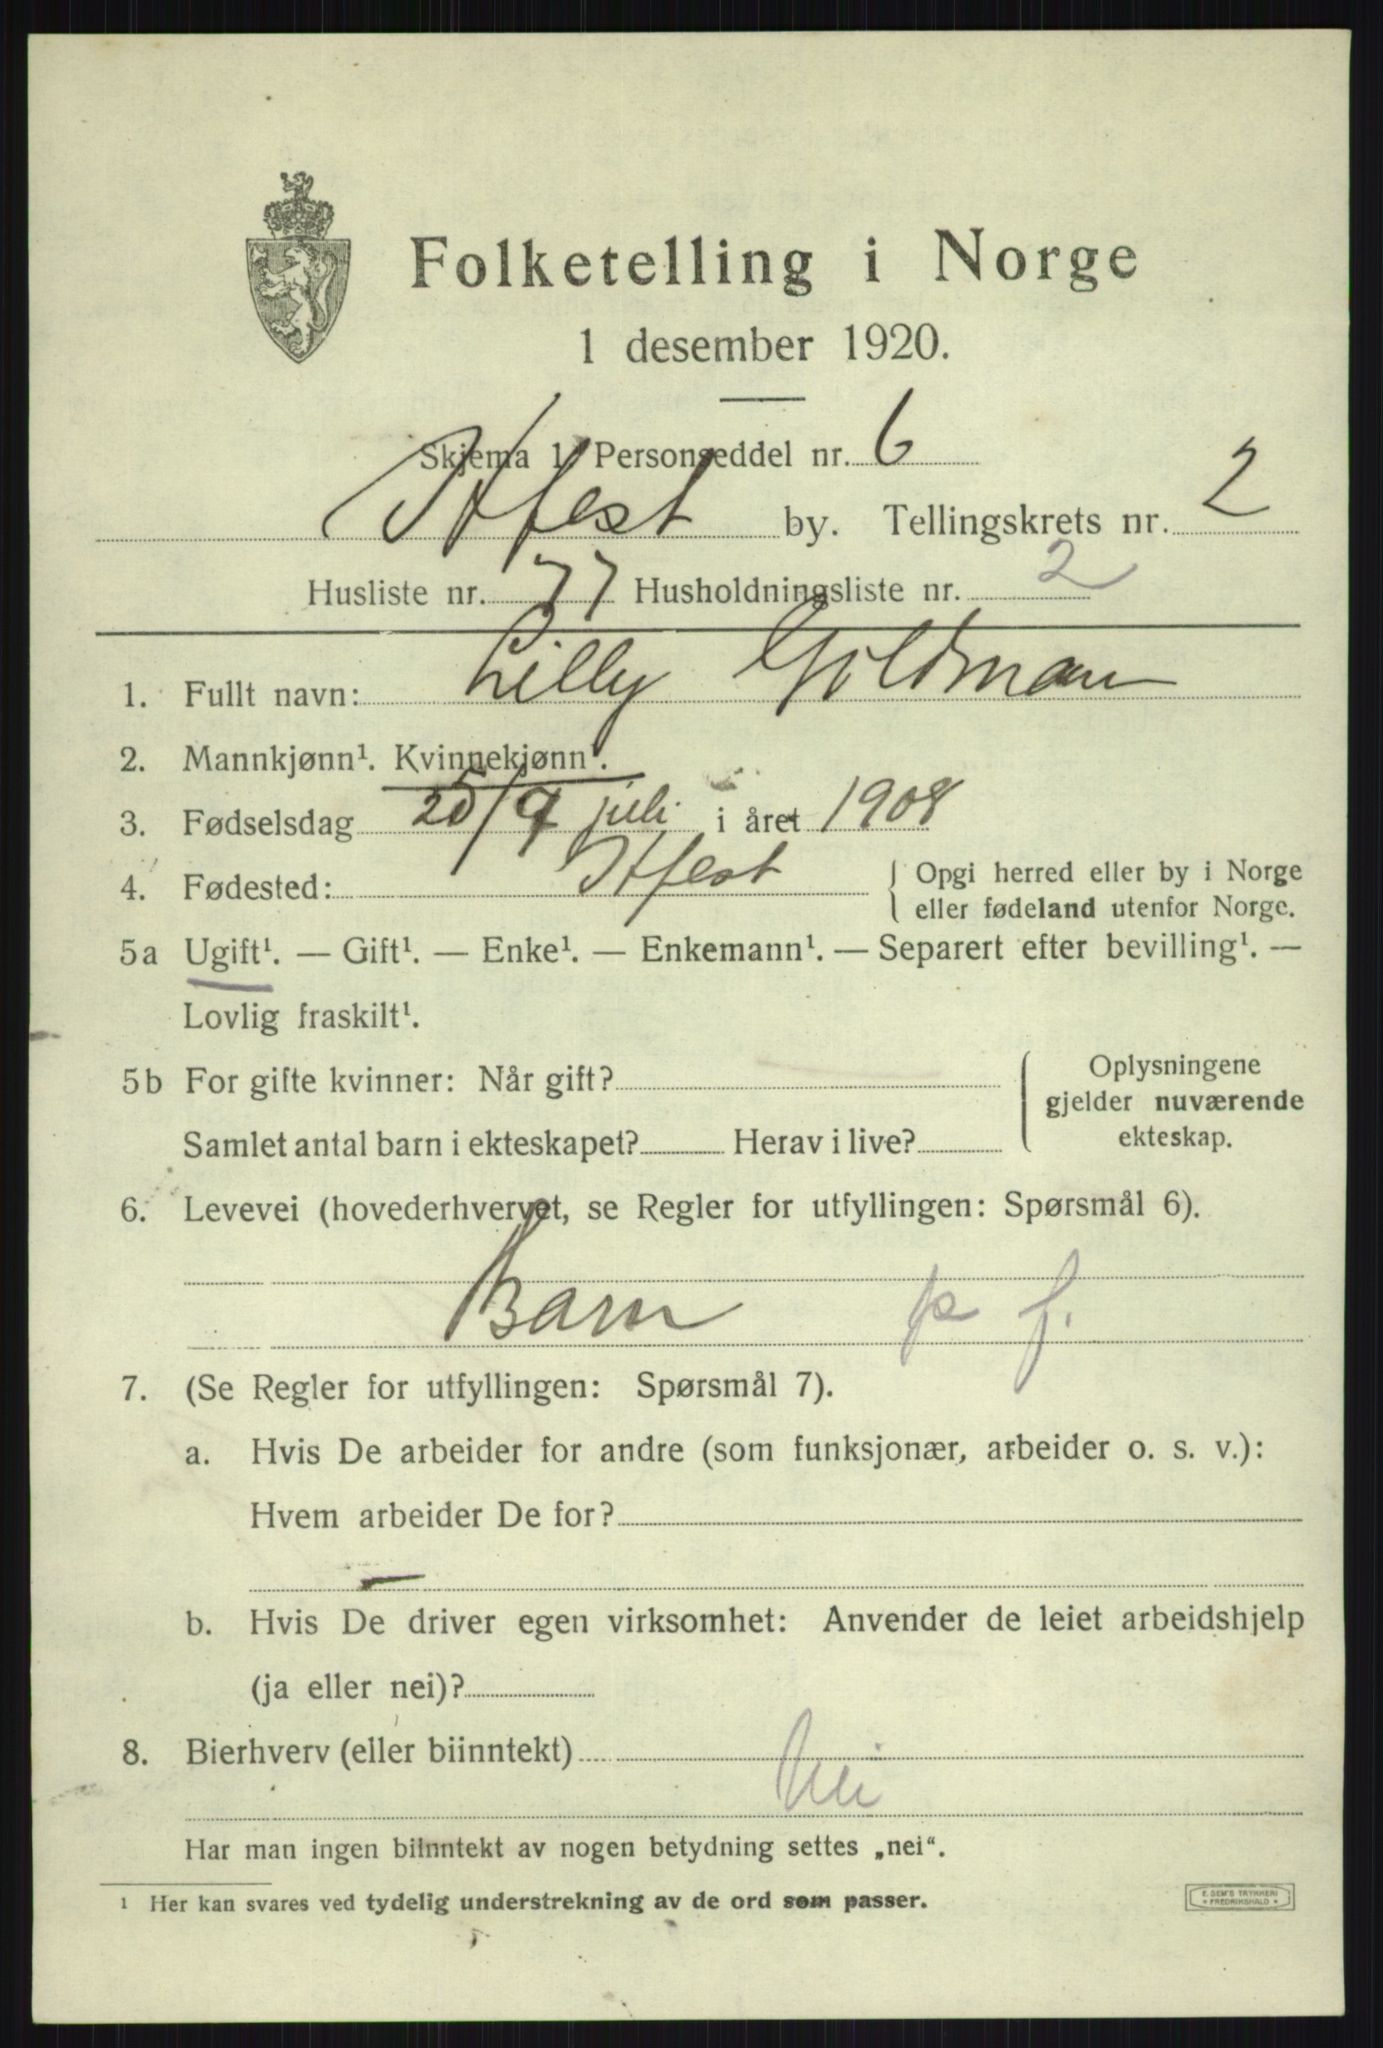 Folketelling i Norge
1 desember 1920.
Skjema 1. Personseddel nr. 6
Hfest by. Tellingskrets nr. 2
Husliste nr. 77 Husholdningsliste nr. 2
1. Fullt navn: Lilly Goldman
2. Mannkjønn¹. Kvinnekjønn¹.
3. Fødselsdag 25/7 juli i året 1908
4. Fødested: Hfest { Opgi herred eller by i Norge
eller fødeland utenfor Norge.
5a Ugift¹. — Gift¹. — Enke¹. — Enkemann¹. — Separert efter bevilling¹. —
Lovlig fraskilt¹.
5b For gifte kvinner: Når gift? { Oplysningene
gjelder nuværende
Samlet antal barn i ekteskapet? Herav i live? ekteskap.
6. Levevei (hovederhvervet, se Regler for utfyllingen: Spørsmål 6).
Barn p f.
7. (Se Regler for utfyllingen: Spørsmål 7).
a. Hvis De arbeider for andre (som funksjonær, arbeider o. s. v.):
Hvem arbeider De for?
—
b. Hvis De driver egen virksomhet: Anvender de leiet arbeidshjelp
(ja eller nei)?
8. Bierhverv (eller biinntekt)
Nei
Har man ingen biinntekt av nogen betydning settes „nei“.
¹ Her kan svares ved tydelig understrekning av de ord som passer.
E. SEM'S TRYKKERI
* FREDRIKSHALD *